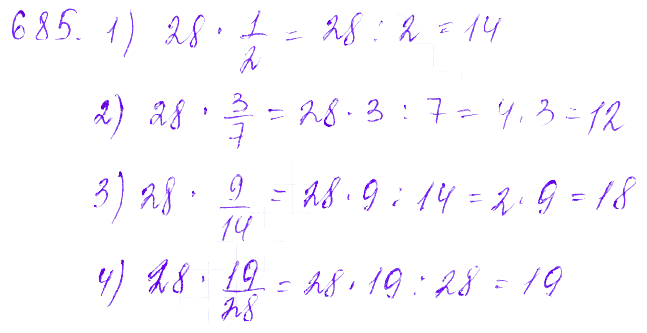 685. 1) 28 · 1/2 = 28 : 2 = 14
2) 28 · 3/7 = 28 · 3 : 7 = 4 · 3 = 12
3) 28 · 9/14 = 28 · 9 : 14 = 2 · 9 = 18
4) 28 · 19/28 = 28 · 19 : 28 = 19